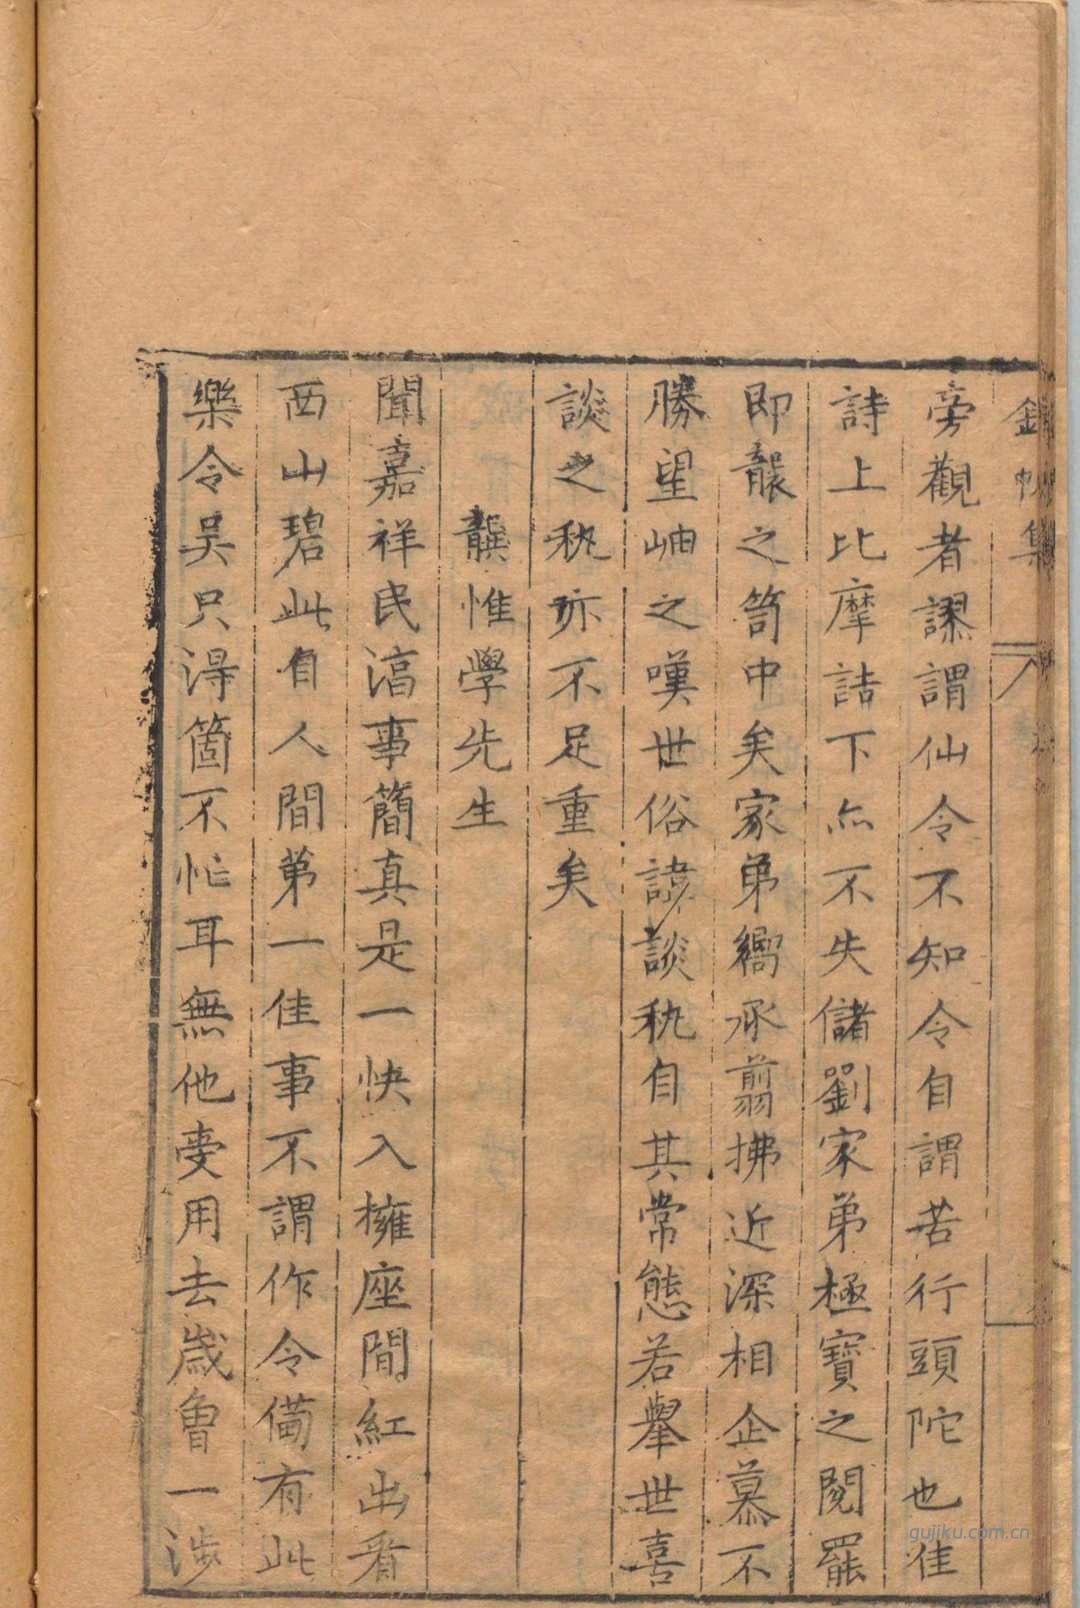 錦帆集 八
旁觀者謬謂仙令不知令自謂苦行頭陀也佳
詩上比摩詰下亦不失儲劉家弟極寶之閱罷
即襲之笥中矣家弟嚮承翦拂近深相企慕不
勝望岫之嘆世俗諱談秇自其常態若舉世喜
談之秇亦不足重矣
龔惟學先生
聞嘉祥民湻事簡真是一快入擁座間紅出看
西山碧此自人間第一佳事不謂作令備有此
樂令吳只得箇不忙耳無他受用去歲曾一涉
gujiku.com.cn